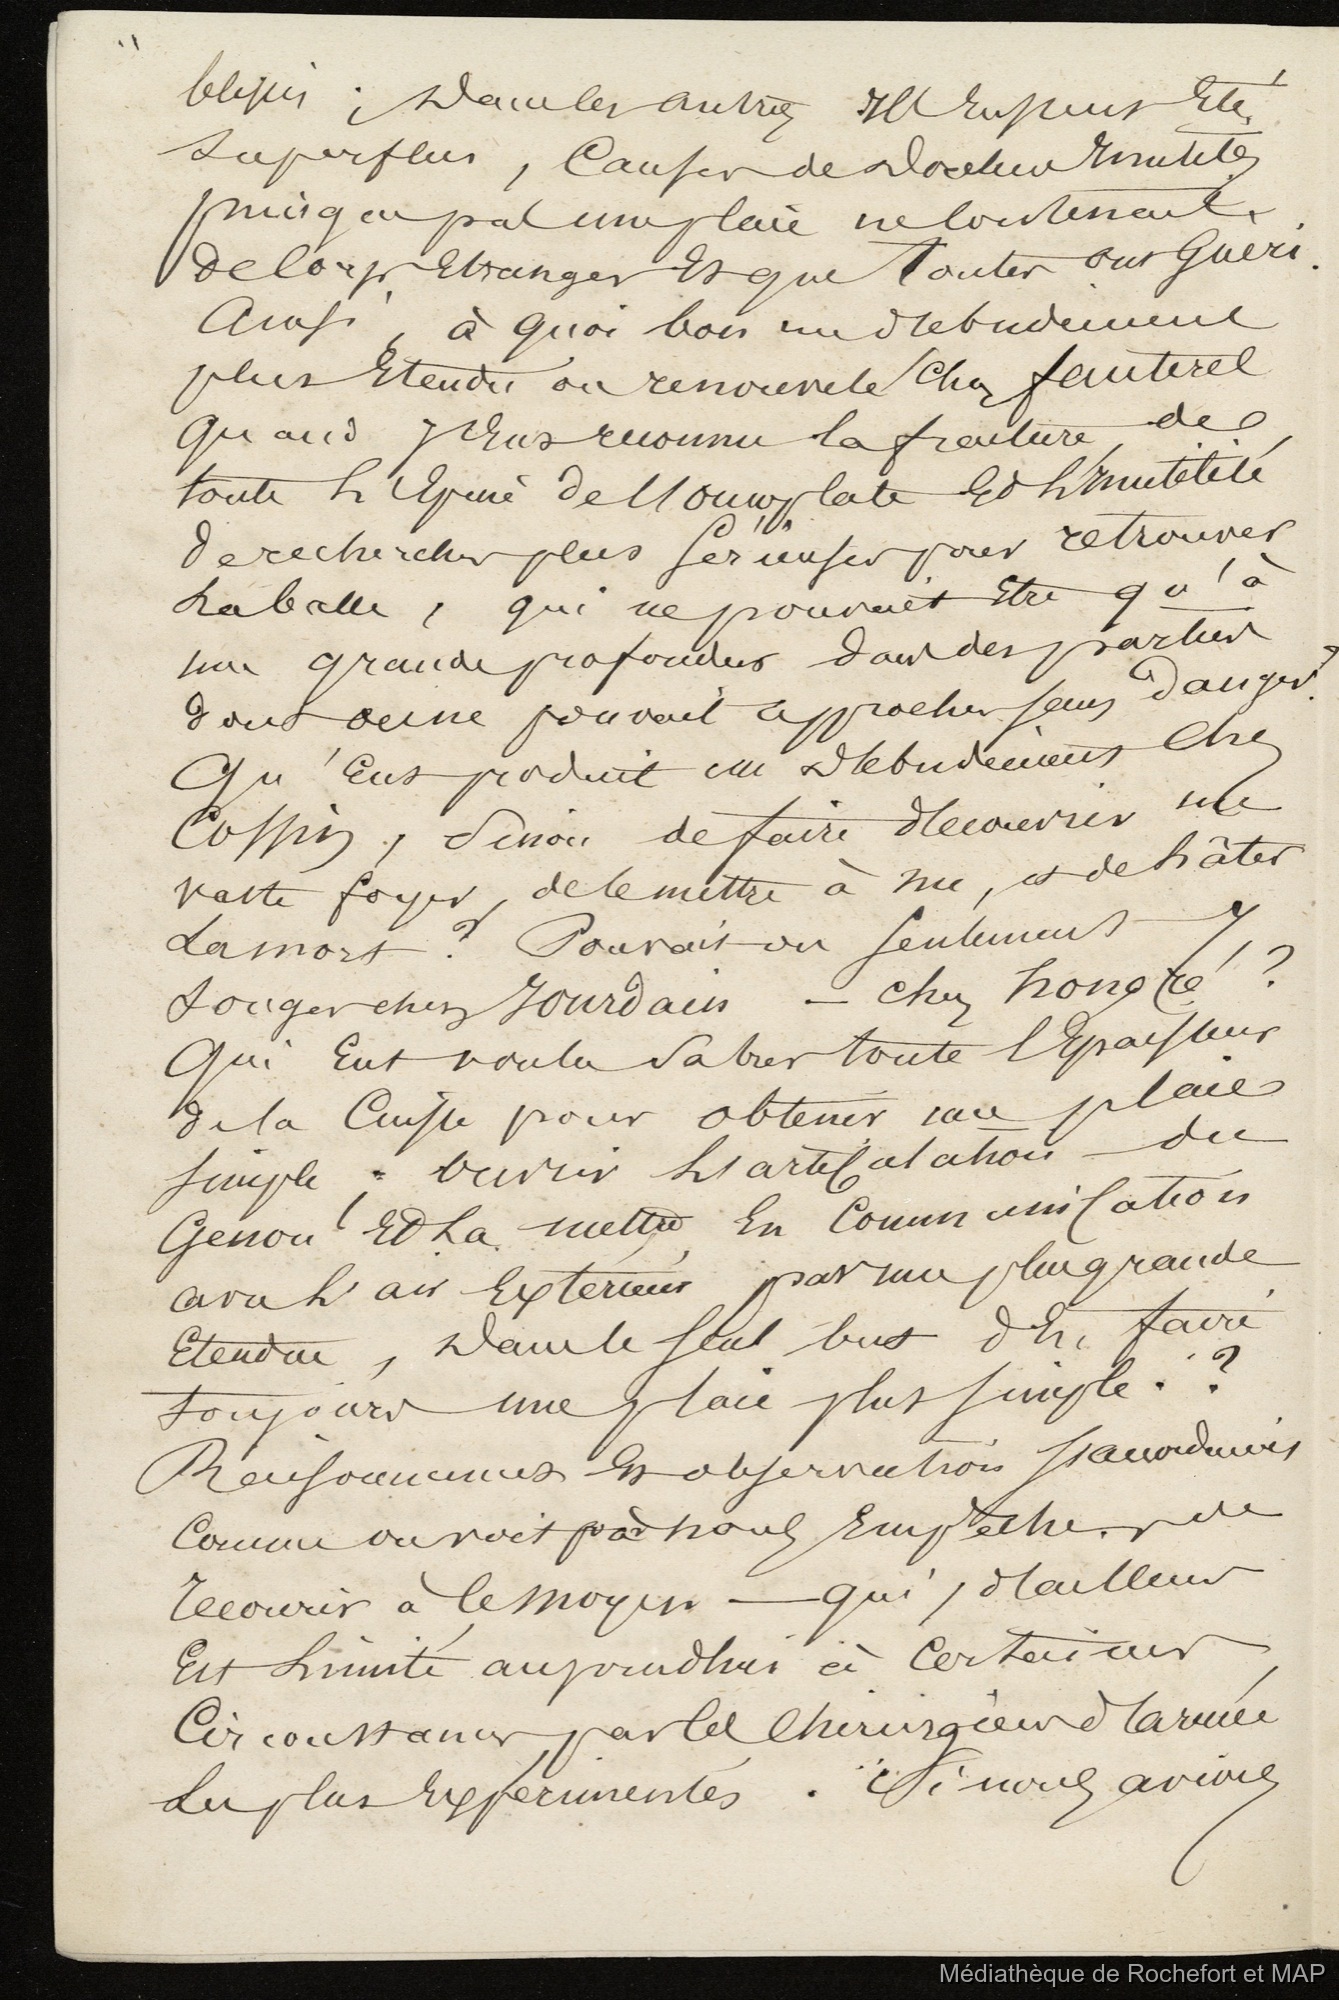 blessés ; Dans les autres Ils eussent Été
superflus , Causes de douleurs Inutiles
puisque pas une plaie ne contenait
de Corps Etranger Et que toutes ont Guéri.
Ainsi , à quoi bon un débridement
plus Etendu ou renouvelé chez fauterel
quand J'Eus reconnu la fracture de
toute L'Epine de l'omoplate Et L'Inutilité
de recherches plus sérieuses pour retrouver
La balle , qui ne pouvait Etre qu'à
une grande profondeur dans des parties
dont on ne pouvait approcher sans danger ?
Qu'Eut produit un débridement chez
Cossin , Sinon de faire découvrir un
vaste foyer , de le mettre à nu , et de hâter
La mort ? Pouvait-on seulement y
songer chez Jourdain — chez hongré ?
Qui Eut voulu Sabrer toute l'Epaisseur
de la Cuisse pour obtenir une plaie
simple ; ouvrir L'articulation du
Genou Et La mettre En Communication
avec L'air Extérieur par une plus grande
Etendue , Dans le seul but d'En faire
toujours une plaie plus simple ?
Raisonnement Et observation s'accordaient
Comme on voit pour nous Empêcher de
recourir à ce moyen — qui , d'ailleurs
Est Limité aujourd'hui à Certaines
Circonstances par les Chirurgiens d'armée
Les plus Expérimentés . Si nous avions
Médiathèque de Rochefort et MAP